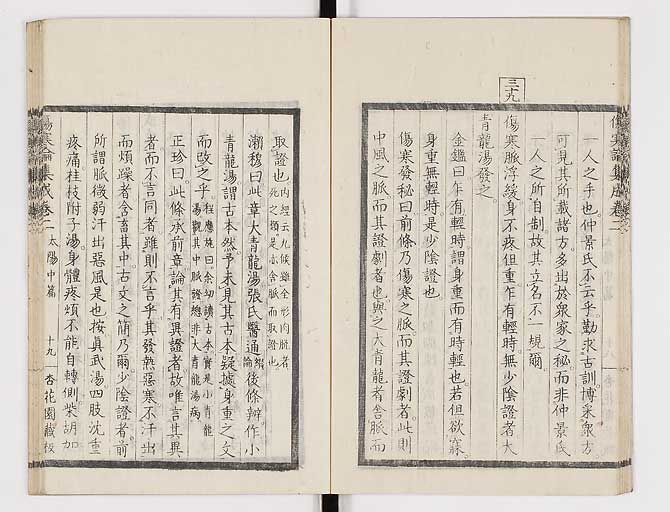 傷寒論集成卷二
一人之手也仲景氏不云乎勤求古訓博采衆方
可見其所載諸方多出於衆家之秘而非仲景氏
一人之所自制故其立名不一規爾
三十九
傷寒脈浮緩身不疼但重乍有輕時無少陰證者大
青龍湯發之
金鑑曰乍有輕時謂身重而有時輕也若但欲寐
身重無輕時是少陰證也
傷寒發秘曰前條乃傷寒之脈而其證劇者此則
中風之脈而其證劇者也與之大青龍者舍脈而
取證也内經云九候雖全形肉脫者
死之類是亦舍脈而取證也
瀨穆曰此章大青龍湯張氏醫通纘論後條辨作小
青龍湯謂古本然予未見其古本疑據身重之文
而改之乎程應旄曰余切讀古本實是小青龍
湯觀其中脈證總非大青龍湯病
正珍曰此條承前章論其有異證者故唯言其異
者而不言同者雖則不言乎其發熱惡寒不汗出
而煩躁者含畜其中古文之簡乃爾少陰證者前
所謂脈微弱汗出惡風是也按眞武湯四肢沈重
疼痛桂枝附子湯身體疼煩不能自轉側柴胡加
傷寒論集成卷二
太陽中篇
十九
杏花園藏板